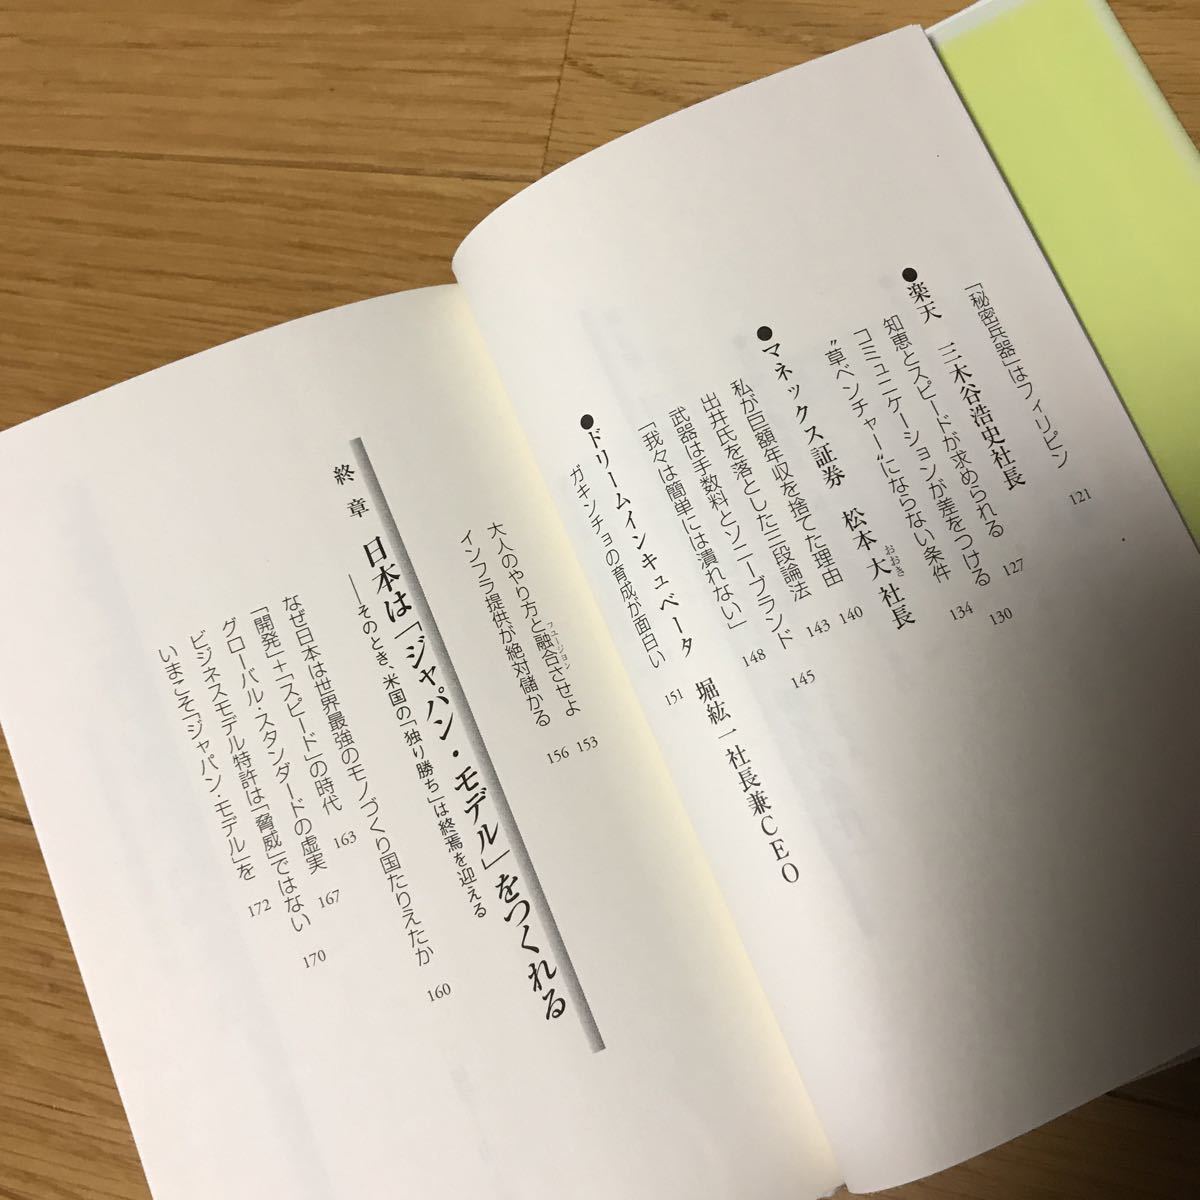 「秘密兵器」はフィリピン 121
●楽天 三木谷浩史社長
知恵とスピードが求められる 127
コミュニケーションが差をつける 130
“草ベンチャー”にならない条件 134
●マネックス証券 松本大社長
おおき
私が巨額年収を捨てた理由 140
出井氏を落とした三段論法 143
武器は手数料とソニーブランド 145
「我々は簡単には潰れない」 148
●ドリームインキュベータ 堀紘一社長兼CEO
ガキンチョの育成が面白い 151
大人のやり方と融合させよ 153
フュージョン
インフラ提供が絶対儲かる 156
終章 日本は「ジャパン・モデル」をつくれる
――そのとき、米国の「独り勝ち」は終焉を迎える
なぜ日本は世界最強のモノづくり国たりえたか 160
「開発」+「スピード」の時代 163
グローバル・スタンダードの虚実 167
ビジネスモデル特許は「脅威」ではない 170
いまこそ「ジャパン・モデル」を 172